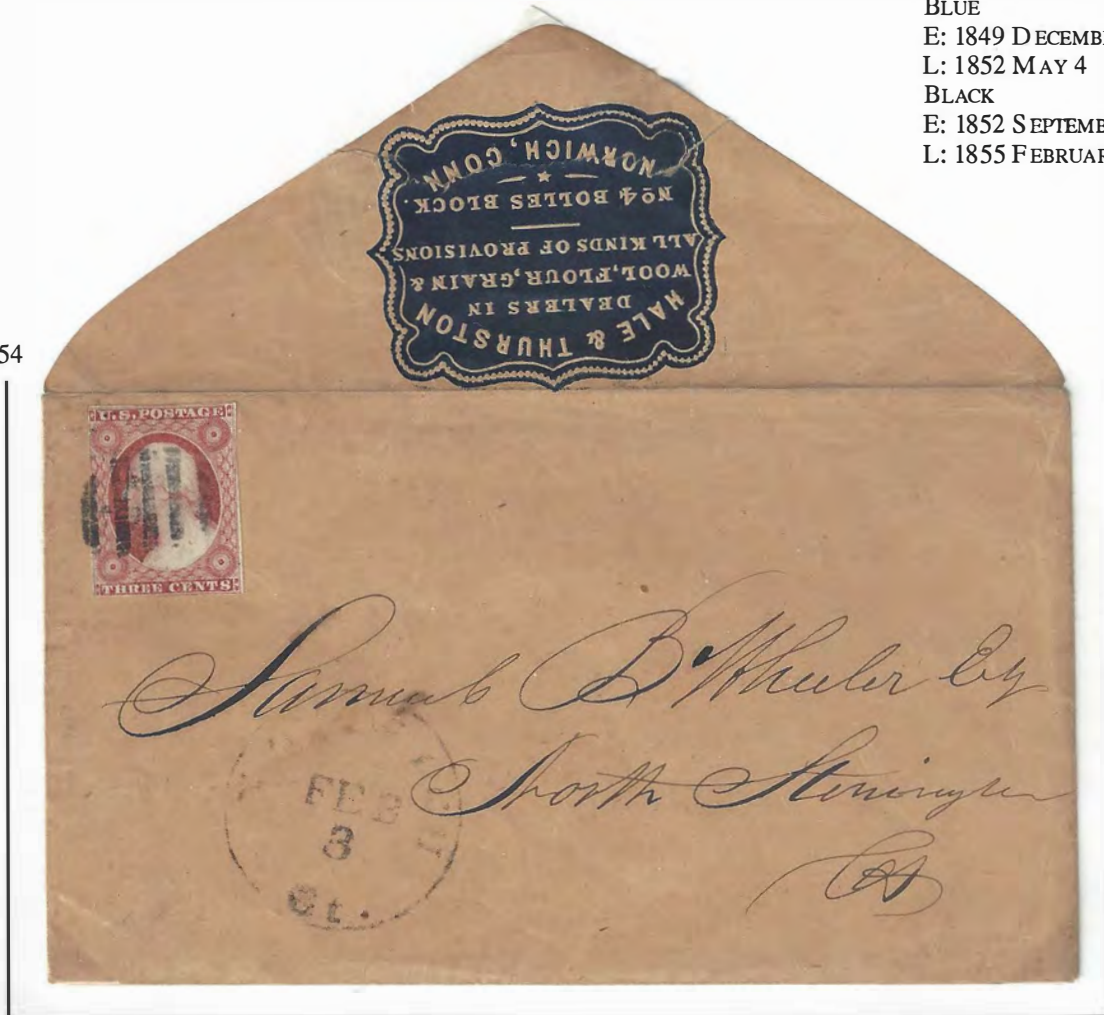 BLUE
E: 1849 DECEMB
L: 1852 MAY 4
BLACK
E: 1852 SEPTEMB
L: 1855 FEBRUAR
54
HALE & THURSTON
DEALERS IN
WOOL, FLOUR, GRAIN &
ALL KINDS OF PROVISIONS
No 4 BOLLES BLOCK.
NORWICH, CONN.
U.S. POSTAGE
THREE CENTS
Samuel B Wheeler Esq
North Stonington
Ct
FEB
3
Ct.